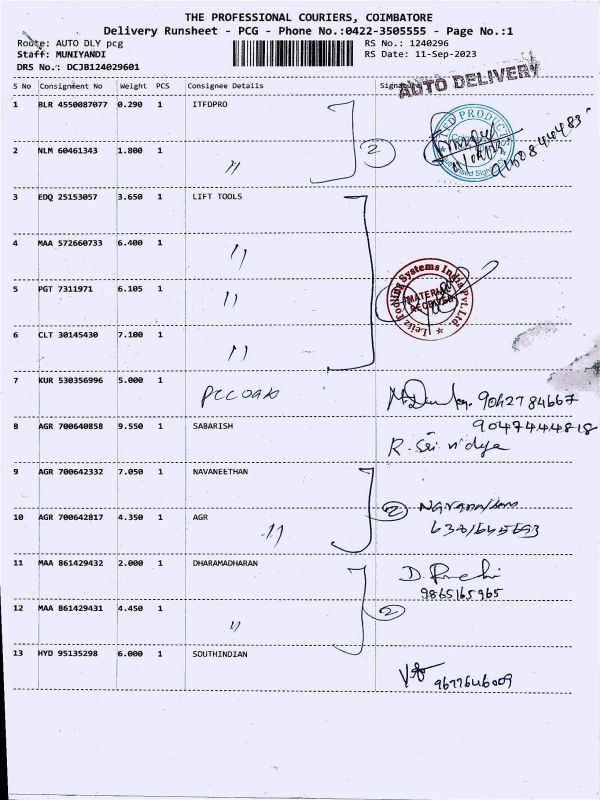 THE PROFESSIONAL COURIERS, COIMBATORE
Delivery Runsheet - PCG - Phone No.:0422-3505555 - Page No.:1
Route: AUTO DLY pcg RS No.: 1240296
Staff: MUNIYANDI RS Date: 11-Sep-2023
DRS No.: DCJB124029601
AUTO DELIVERY
S No Consignment No Weight PCS Consignee Details Signature
1 BLR 4550087077 0.290 1 ITFDPRO
2 NLM 60461343 1.800 1 〃 2
3 EDQ 25153057 3.650 1 LIFT TOOLS
4 MAA 572660733 6.400 1 〃
Leitz Tooling Systems India Pvt. Ltd.
MATERIAL RECEIVED
5 PGT 7311971 6.105 1 〃
6 CLT 30145430 7.100 1 〃
7 KUR 530356996 5.000 1 9042784667
8 AGR 700640858 9.550 1 SABARISH 9047444818
R. Sri vidya
9 AGR 700642332 7.050 1 NAVANEETHAN
10 AGR 700642817 4.350 1 AGR 〃 2
11 MAA 861429432 2.000 1 DHARAMADHARAN
9865165965
12 MAA 861429431 4.450 1 〃 2
13 HYD 95135298 6.000 1 SOUTHINDIAN
9677646009